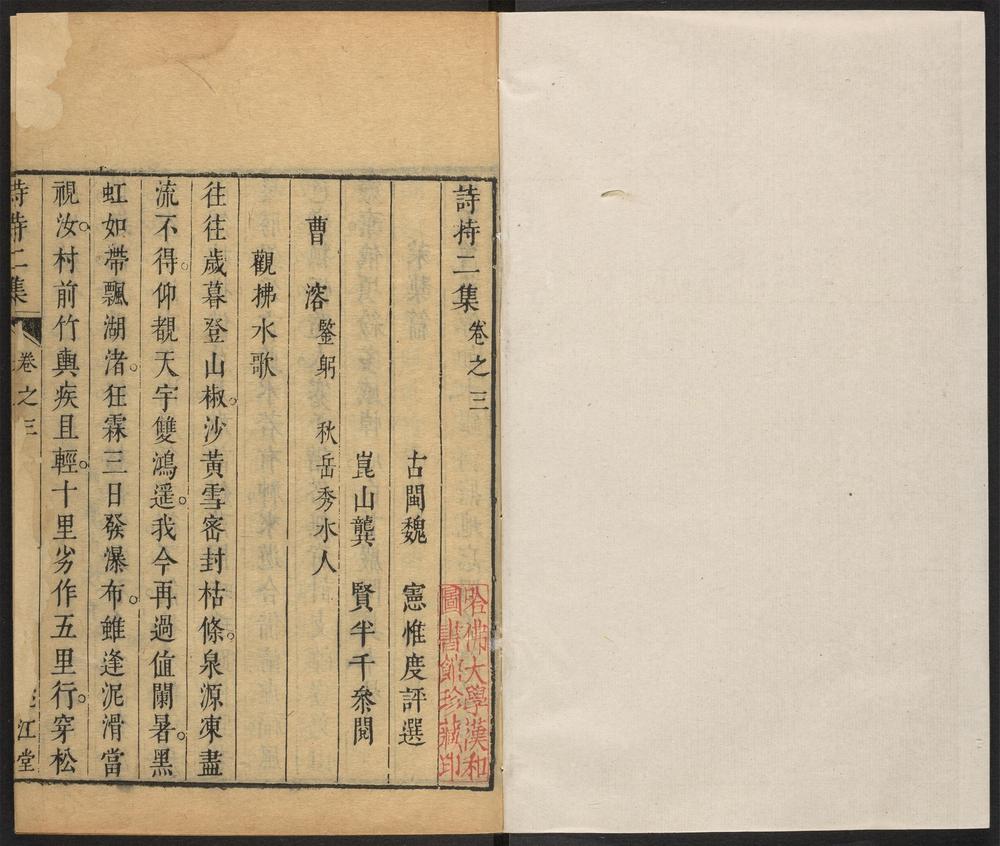 詩持二集卷之三
古閩魏 憲惟度評選
崑山龔 賢半千叅閱
曹 溶鑒躬 秋岳秀水人
觀拂水歌
往往歲暮登山椒。沙黃雪密封枯條。泉源凍盡
流不得。仰覩天宇雙鴻遥。我今再過值闌暑。黑
虹如帶飄湖渚。狂霖三日發瀑布。雖逢泥滑當
視汝。村前竹輿疾且輕。十里劣作五里行。穿松
詩持二集 卷之三 江堂
哈佛大學漢和
圖書館珍藏印